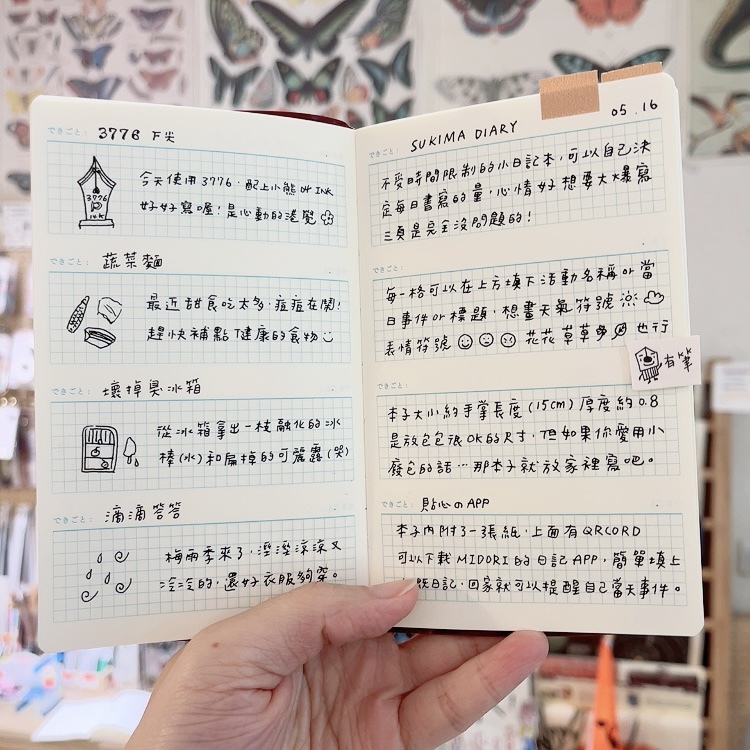 できごと： 3776 下尖
3776
14K
今天使用3776．配上小熊 04 INK
好好寫喔！是心動的感覺
できごと： 蔬菜麵
最近甜食吃太多．痘痘在鬧！
趕快補點健康的食物
できごと： 壞掉臭冰箱
從冰箱拿出一枝融化的冰
棒(水)和扁掉的可麗露(哭)
できごと： 滴滴答答
梅雨季來了．溼溼涼涼又
冷冷的．還好衣服夠穿。
できごと： SUKIMA DIARY
05．16
不受時間限制的小日記本，可以自己決
定每日書寫的量，心情好想要大大爆寫
三頁是完全沒問題的！
できごと：
每一格可以在上方填下活動名稱or當
日事件or標題，想畫天氣符號
表情符號 花花草草 也行
有筆
できごと：
本子大小約手掌長度(15cm)厚度約0.8
是放包包很OK的尺寸，但如果你愛用小
廢包的話…那本子就放家裡寫吧。
できごと： 貼心のAPP
本子內附了一張紙．上面有QRCORD
可以下載MIDORI的日記APP，簡單填上
日記．回家就可以提醒自己當天事件。